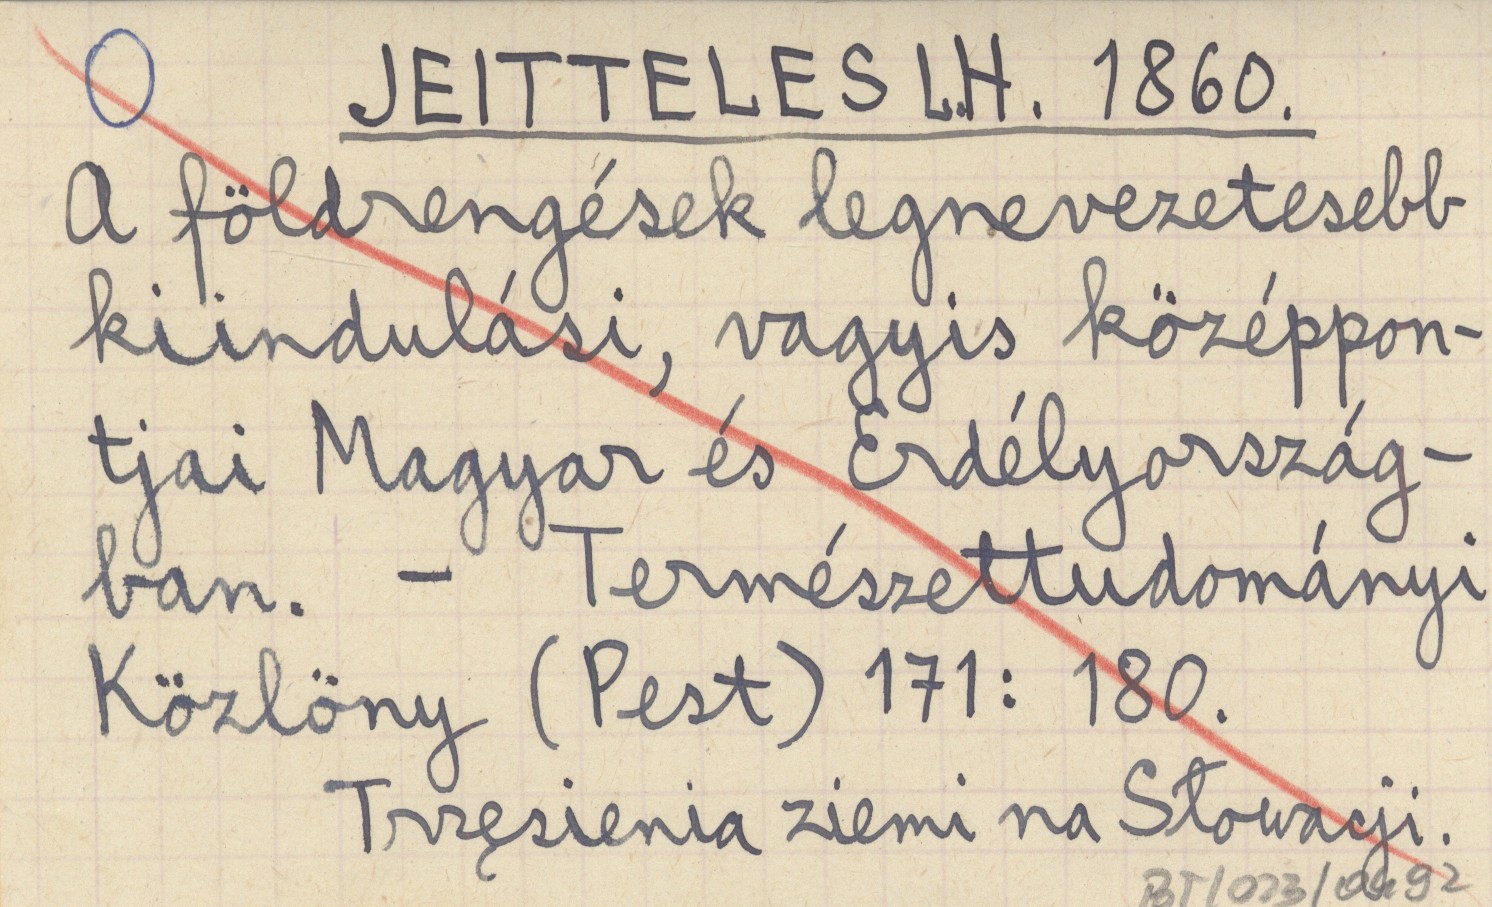 JEITTELES L.H. 1860.
A földrengések legnevezetesebb
kiindulási, vagyis középpon-
tjai Magyar és Erdélyország-
ban. – Természettudományi
Közlöny (Pest) 171: 180.
Trzęsienia ziemi na Słowacji.
BT/023/0492